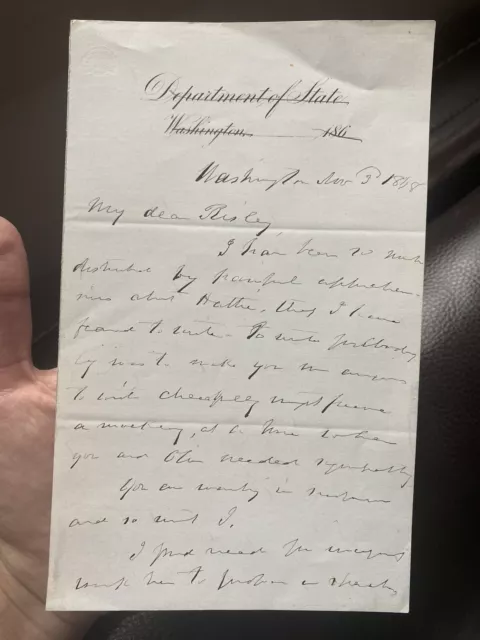 Department of State
Washington, 186
Washington Nov 3d 1868
My dear Risley
I have been so much
disturbed by painful apprehen-
sions about Hattie, that I have
feared to write. To write
by was to make you more anxious
to write cheerfully might prove
a mockery, at a time when
you and Olive needed sympathy
You are wanting in
and so must I.
I find need for
work here to